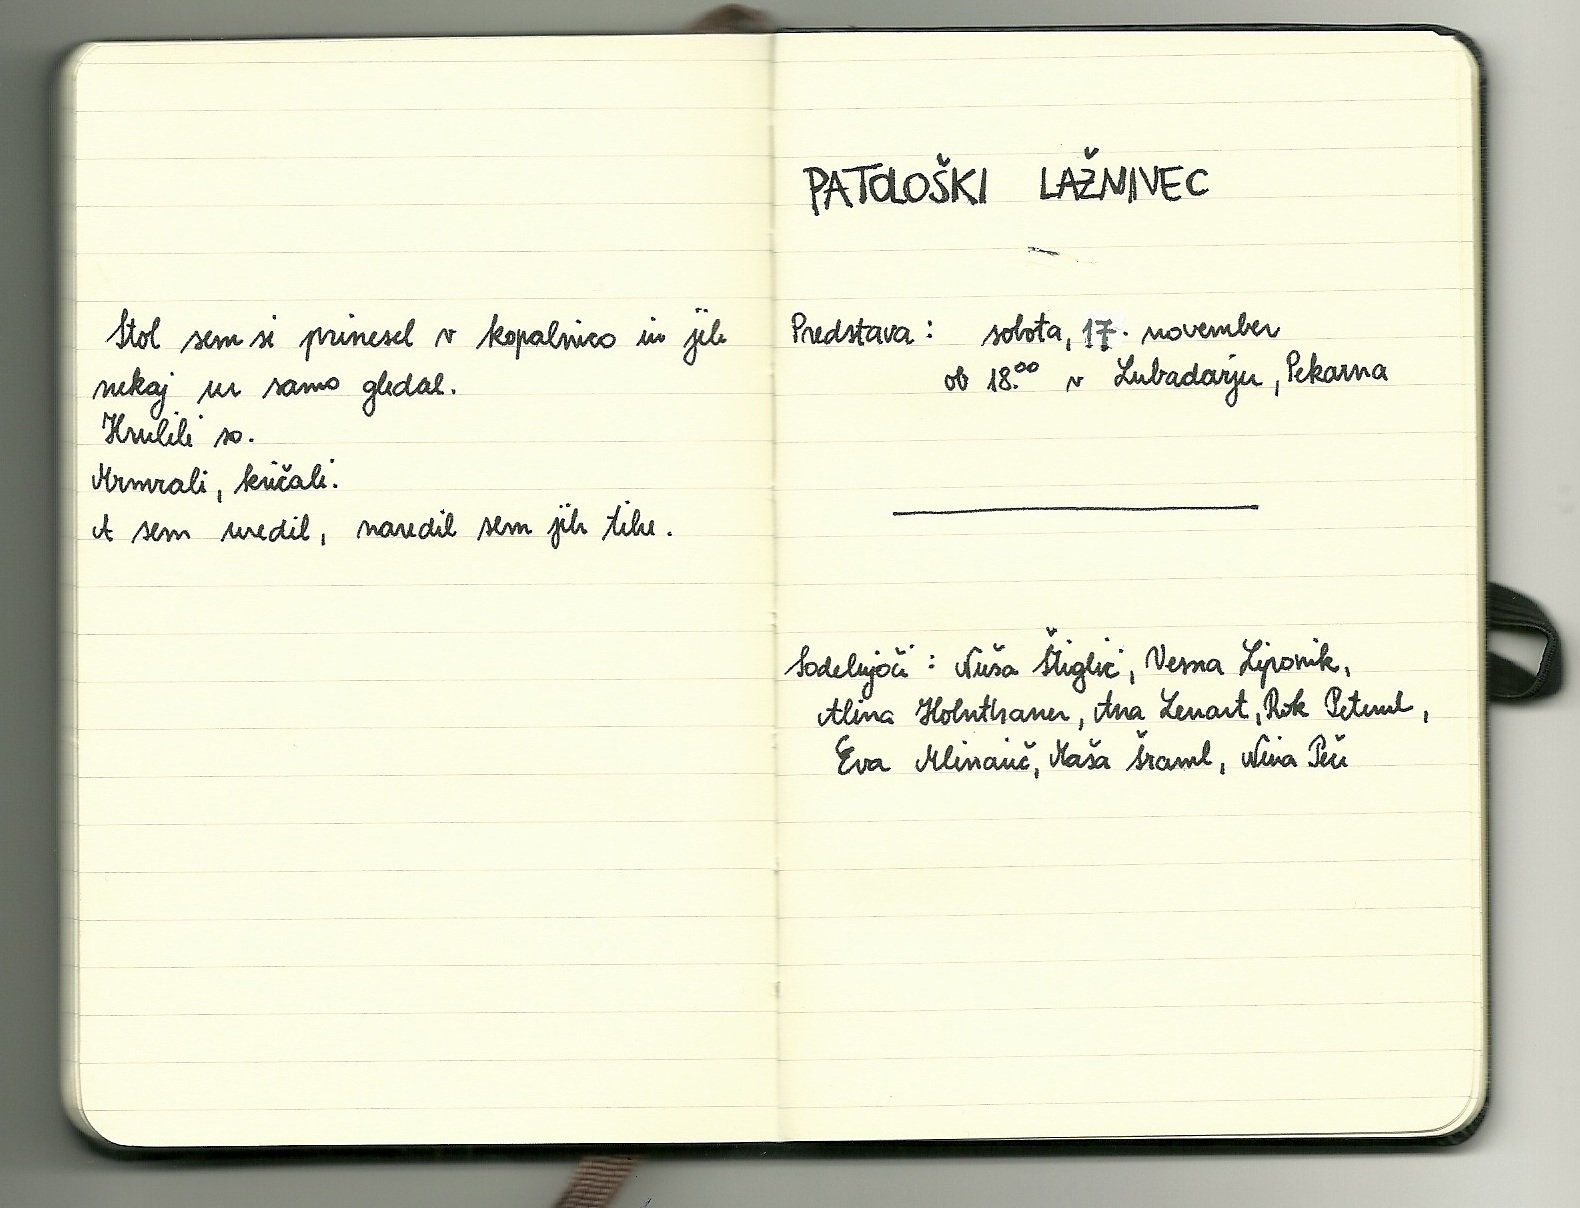 Stol sem si prinesel v kopalnico in jih
nekaj ur samo gledal.
Hrulili so.
Mrmrali, kričali.
A sem uredil, naredil sem jih tihe.
PATOLOŠKI LAŽNIVEC
Predstava: sobota, 17. november
ob 18.00 v Lubadarju, Pekarna
Sodelujoči: Nuša Štiglic, Vesna Lipovnik,
Alina Holnthaner, Ana Lenart, Rok
Eva Mlinarič, Maša Šraml, Nina Peče